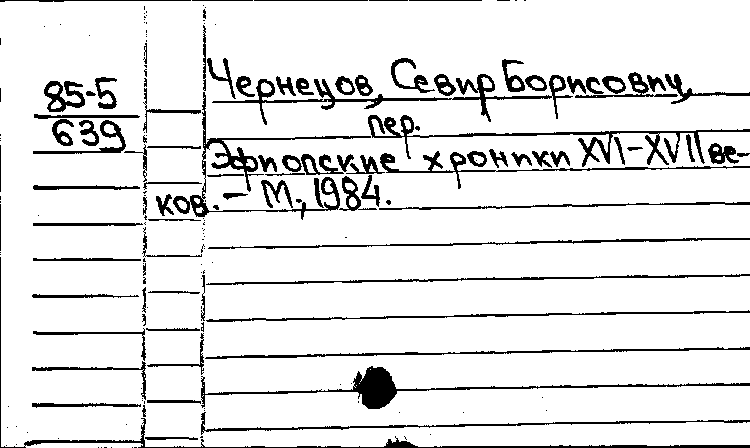 85-5
639
Чернецов, Севир Борисович,
пер.
Эфиопские хроники XVI-XVII ве-
ков. - М., 1984.